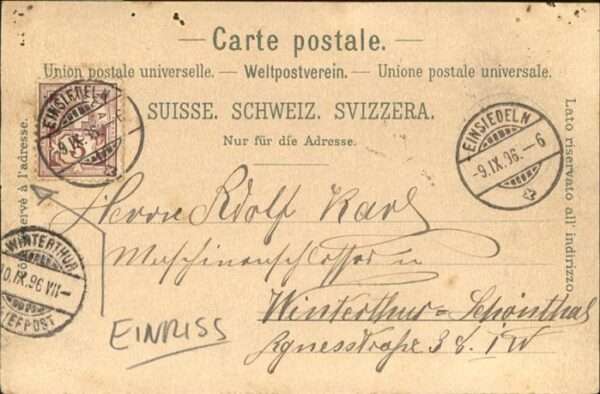 Carte postale.
Union postale universelle. — Weltpostverein. — Unione postale universale.
SUISSE. SCHWEIZ. SVIZZERA.
Nur für die Adresse.
EINSIEDELN
9.IX.96
5
EINSIEDELN
-9.IX.96.-6
à l'adresse.
Lato riservato all' indirizzo
Herrn Adolf Karl
Maschinenschlosser in
Winterthur=Schönthal
Agnesstraße 38. IV
WINTERTHUR
10.IX.96 VII-
BRIEFPOST
EINRISS